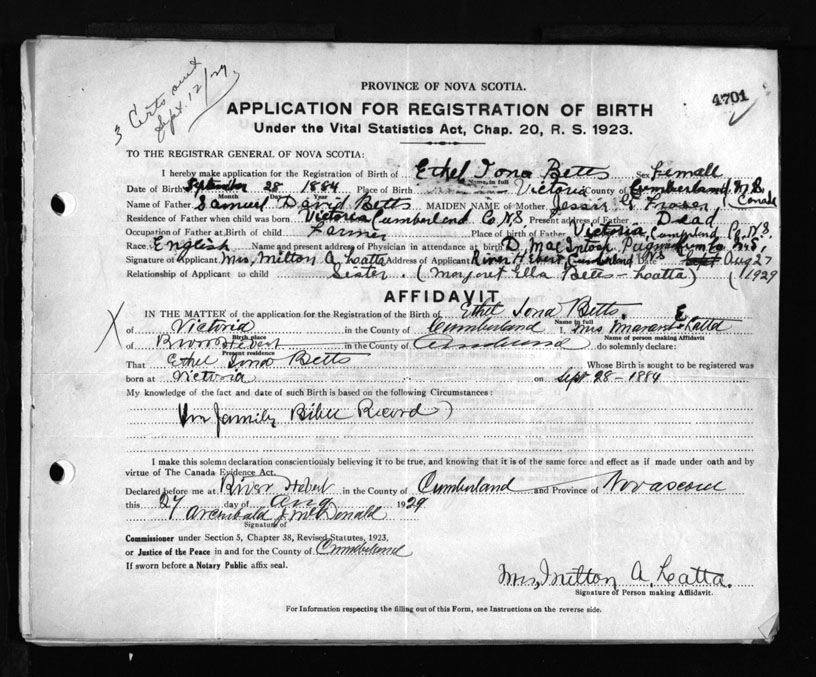 3 Certs sent
Sept. 12/29
4701
PROVINCE OF NOVA SCOTIA.
APPLICATION FOR REGISTRATION OF BIRTH
Under the Vital Statistics Act, Chap. 20, R. S. 1923.
TO THE REGISTRAR GENERAL OF NOVA SCOTIA:
I hereby make application for the Registration of Birth of Ethel Iona Betts Sex Femall
Name, in full
Date of Birth September 28 1884 Place of Birth Victoria County of Cumberland, N.S.
Month Day Year Canada
Name of Father Samuel David Betts MAIDEN NAME of Mother Jessie G Fraser
Residence of Father when child was born Victoria Cumberland Co N.S. Present address of Father Dead
Occupation of Father at Birth of child Farmer Place of birth of Father Victoria, Cumberland Co. N.S.
Race English Name and present address of Physician in attendance at birth D. MacIntosh
Signature of Applicant Mrs, Milton A Latta Address of Applicant River Hebert, Cumberland N.S Date Aug 27
Relationship of Applicant to child Sister. (Margaret Ella Betts - Latta) (1929
AFFIDAVIT
IN THE MATTER of the application for the Registration of the Birth of Ethel Iona Betts.
Name in full
of Victoria in the County of Cumberland I, Mrs E Latta
Birth place Name of person making Affidavit
of River Hebert in the County of do solemnly declare:
Present residence
That Ethel Iona Betts Whose Birth is sought to be registered was
born at Victoria on Sept 28 - 1884
My knowledge of the fact and date of such Birth is based on the following Circumstances:
Family Bible Record)
I make this solemn declaration conscientiously believing it to be true, and knowing that it is of the same force and effect as if made under oath and by
virtue of The Canada Evidence Act.
Declared before me at River Hebert in the County of Cumberland and Province of
this 27 day of Aug 1929
Archibald J McDonald
Signature of
Commissioner under Section 5, Chapter 38, Revised Statutes, 1923,
or Justice of the Peace in and for the County of Cumberland
If sworn before a Notary Public affix seal.
Mrs, Milton A. Latta.
Signature of Person making Affidavit.
For Information respecting the filling out of this Form, see Instructions on the reverse side.